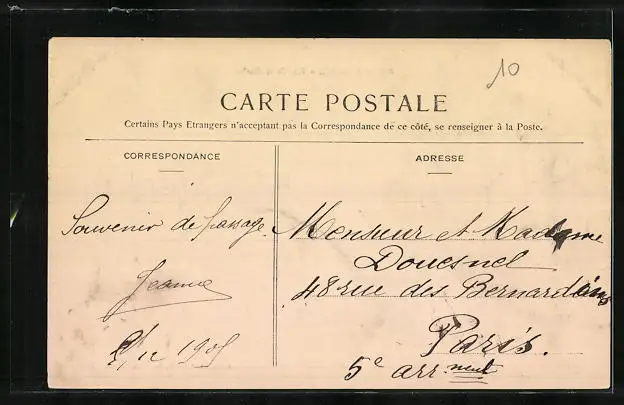 10
CARTE POSTALE
Certains Pays Etrangers n'acceptant pas la Correspondance de ce côté, se renseigner à la Poste.
CORRESPONDANCE
Souvenir de passage
Jeanne
/12 1905
ADRESSE
Monsieur et Madame
Douesnel
48 rue des Bernardins
Paris.
5e arr.ment